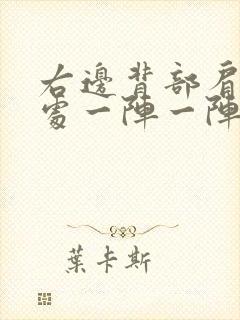 右邊背部肩
處一陣一陣
葉卡斯